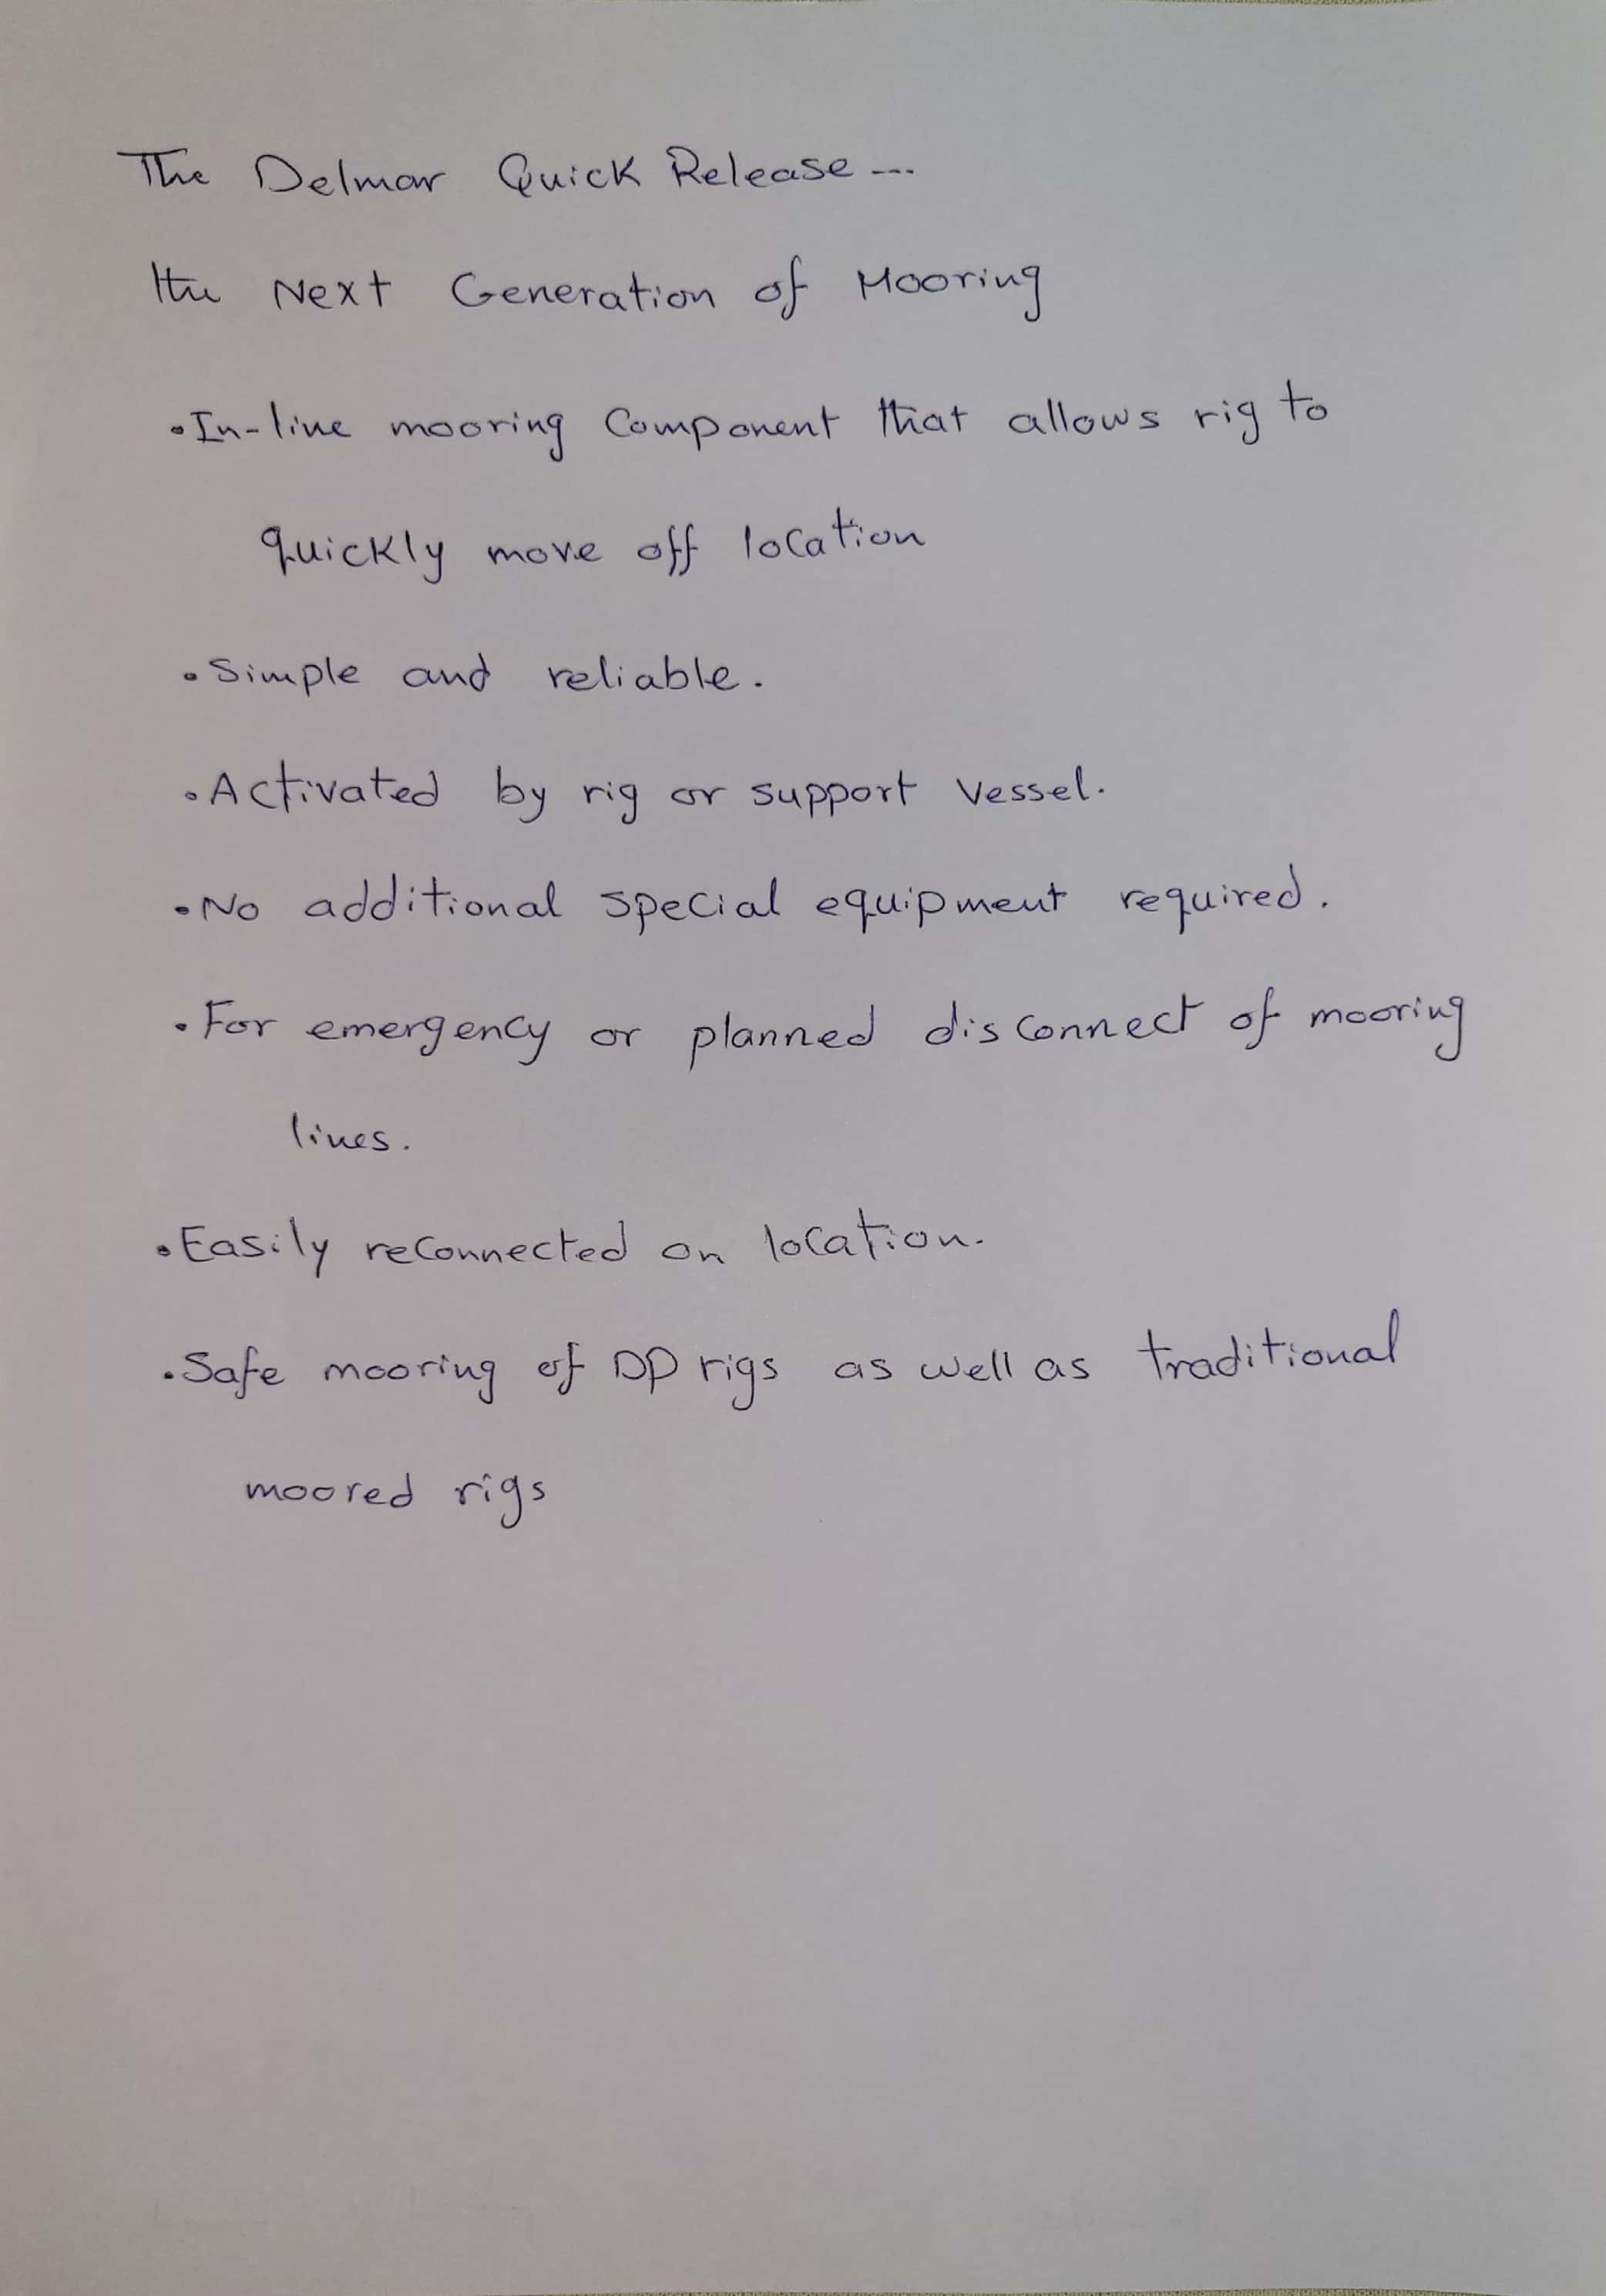 The Delmar Quick Release ---
the Next Generation of Mooring
•In-line mooring Component that allows rig to
quickly move off location
•Simple and reliable.
•Activated by rig or support vessel.
•No additional special equipment required.
•For emergency or planned disconnect of mooring
lines.
•Easily reconnected on location.
•Safe mooring of DP rigs as well as traditional
moored rigs